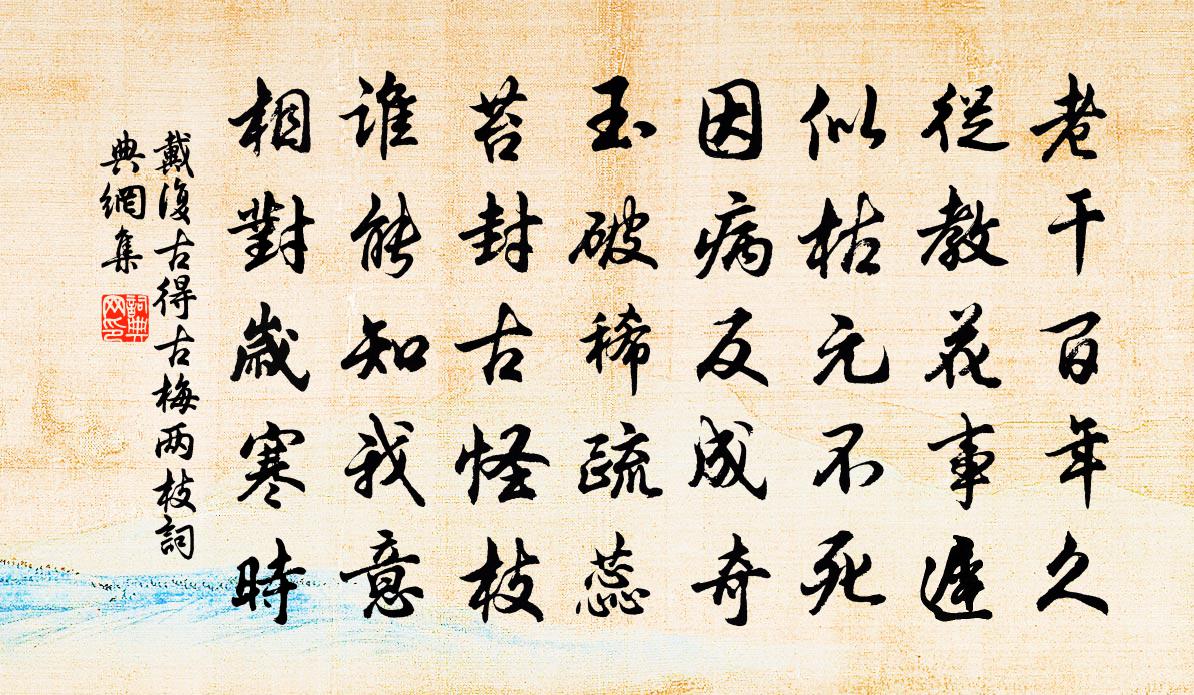 老干百年久
從教花事遲
似枯元不死
因病反成奇
玉破稀疏蕊
苔封古怪枝
誰能知我意
相對歲寒時
戴復古得古梅两枝詞
典網集
詞典
网印